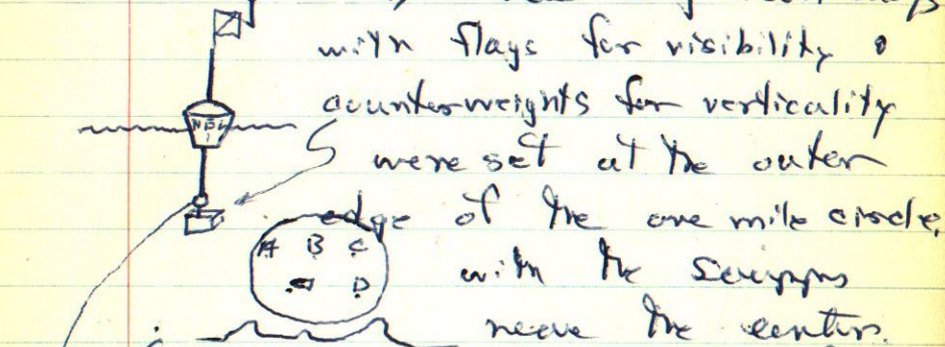 with flags for visibility &
counterweights for verticality
NEL
1
were set at the outer
edge of the one mile circle,
A B C
with the Scripps
D
near the center.